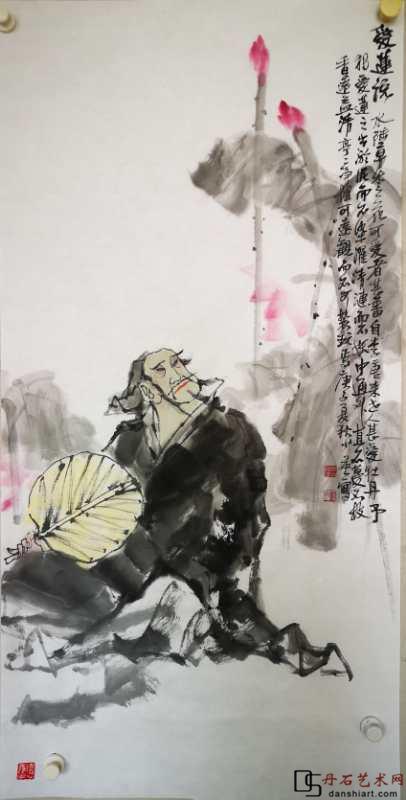 愛蓮說
水陸草木之花可愛者甚蕃自李唐来世人甚愛牡丹予
獨愛蓮之出淤泥而不染濯清漣而不妖中通外直不蔓不枝
香遠益清亭亭淨植可遠觀而不可褻玩焉庚子夏秋小
丹石艺术网
danshiart.com